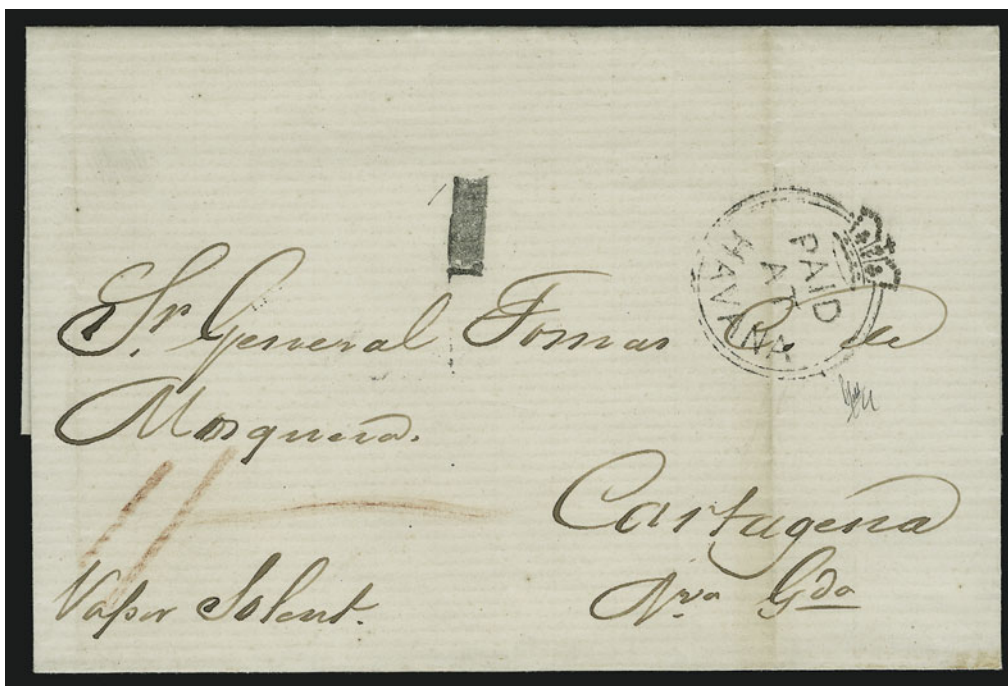 PAID
AT
HAVANA
Sr General Tomas C. de
Mosquera.
Cartagena
Nva Gda
Vapor Solent.